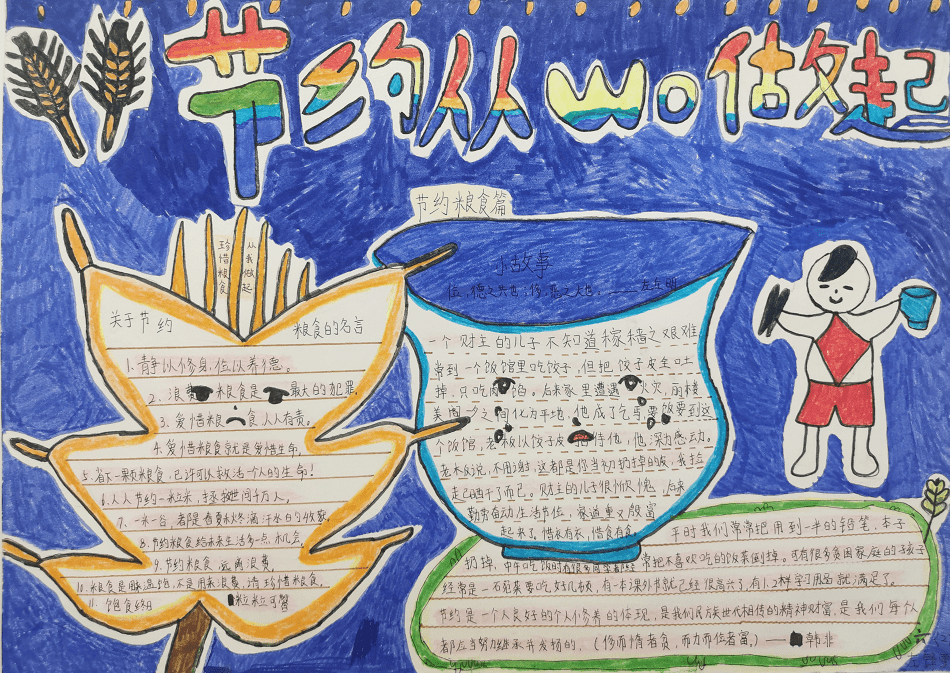 节约从wo做起
珍惜粮食
从我做起
节约粮食篇
关于节约 粮食的名言
1.静以修身,俭以养德。
2.浪费 粮食是 最大的犯罪。
3.爱惜粮 食人人有责。
4.爱惜粮食就是爱惜生命,
5.省下一颗粮食,已许可以救活个人的生命!
6.人人节约一粒米,拯救世间千万人,
7.一米一谷,都是春夏秋冬满汗水白的收获
8.节约粮食给未来生活多一点
9.节约粮食 远离浪费。
10.粮食是 不是用来浪费,请珍惜粮食。
11.饱食终日 粒粒可贵
小故事
俭,德之共也;侈,恶之大也, ——左丘明
一个财主的儿子不知道稼穑之艰难
常到一个饭馆里吃饺子,但把饺子皮全吐
掉,只吃肉馅,后来家里遭遇 火灾,丽楼
美阁 之间化为平地,他成了乞丐 要饭要到这
个饭馆,老板以饺子皮 招待他,他深为感动。
老板说,不用谢,这都是你当初扔掉的皮,我捡
起晒干了而已。财主的儿子很惭愧,后来
勤劳奋动生活节俭,家道重又殷富
起来了,惜衣有衣,惜食有食。
平时我们常常把用到一半的铅笔,本子
扔掉,中午吃饭时有很多同学都经常把不喜欢吃的饭菜倒掉。可有很多贫困家庭的孩子
经常是一石茹来要吃好几顿,有一本课外书就已经很高兴了,有1、2样学习用品就满足了。
节约是一个人良好的个人修养的体现,是我们民族世代相传的精神财富,是我们每个人
都应当努力继承并发扬的,(侈而惰者贫,而力而俭者富——韩非